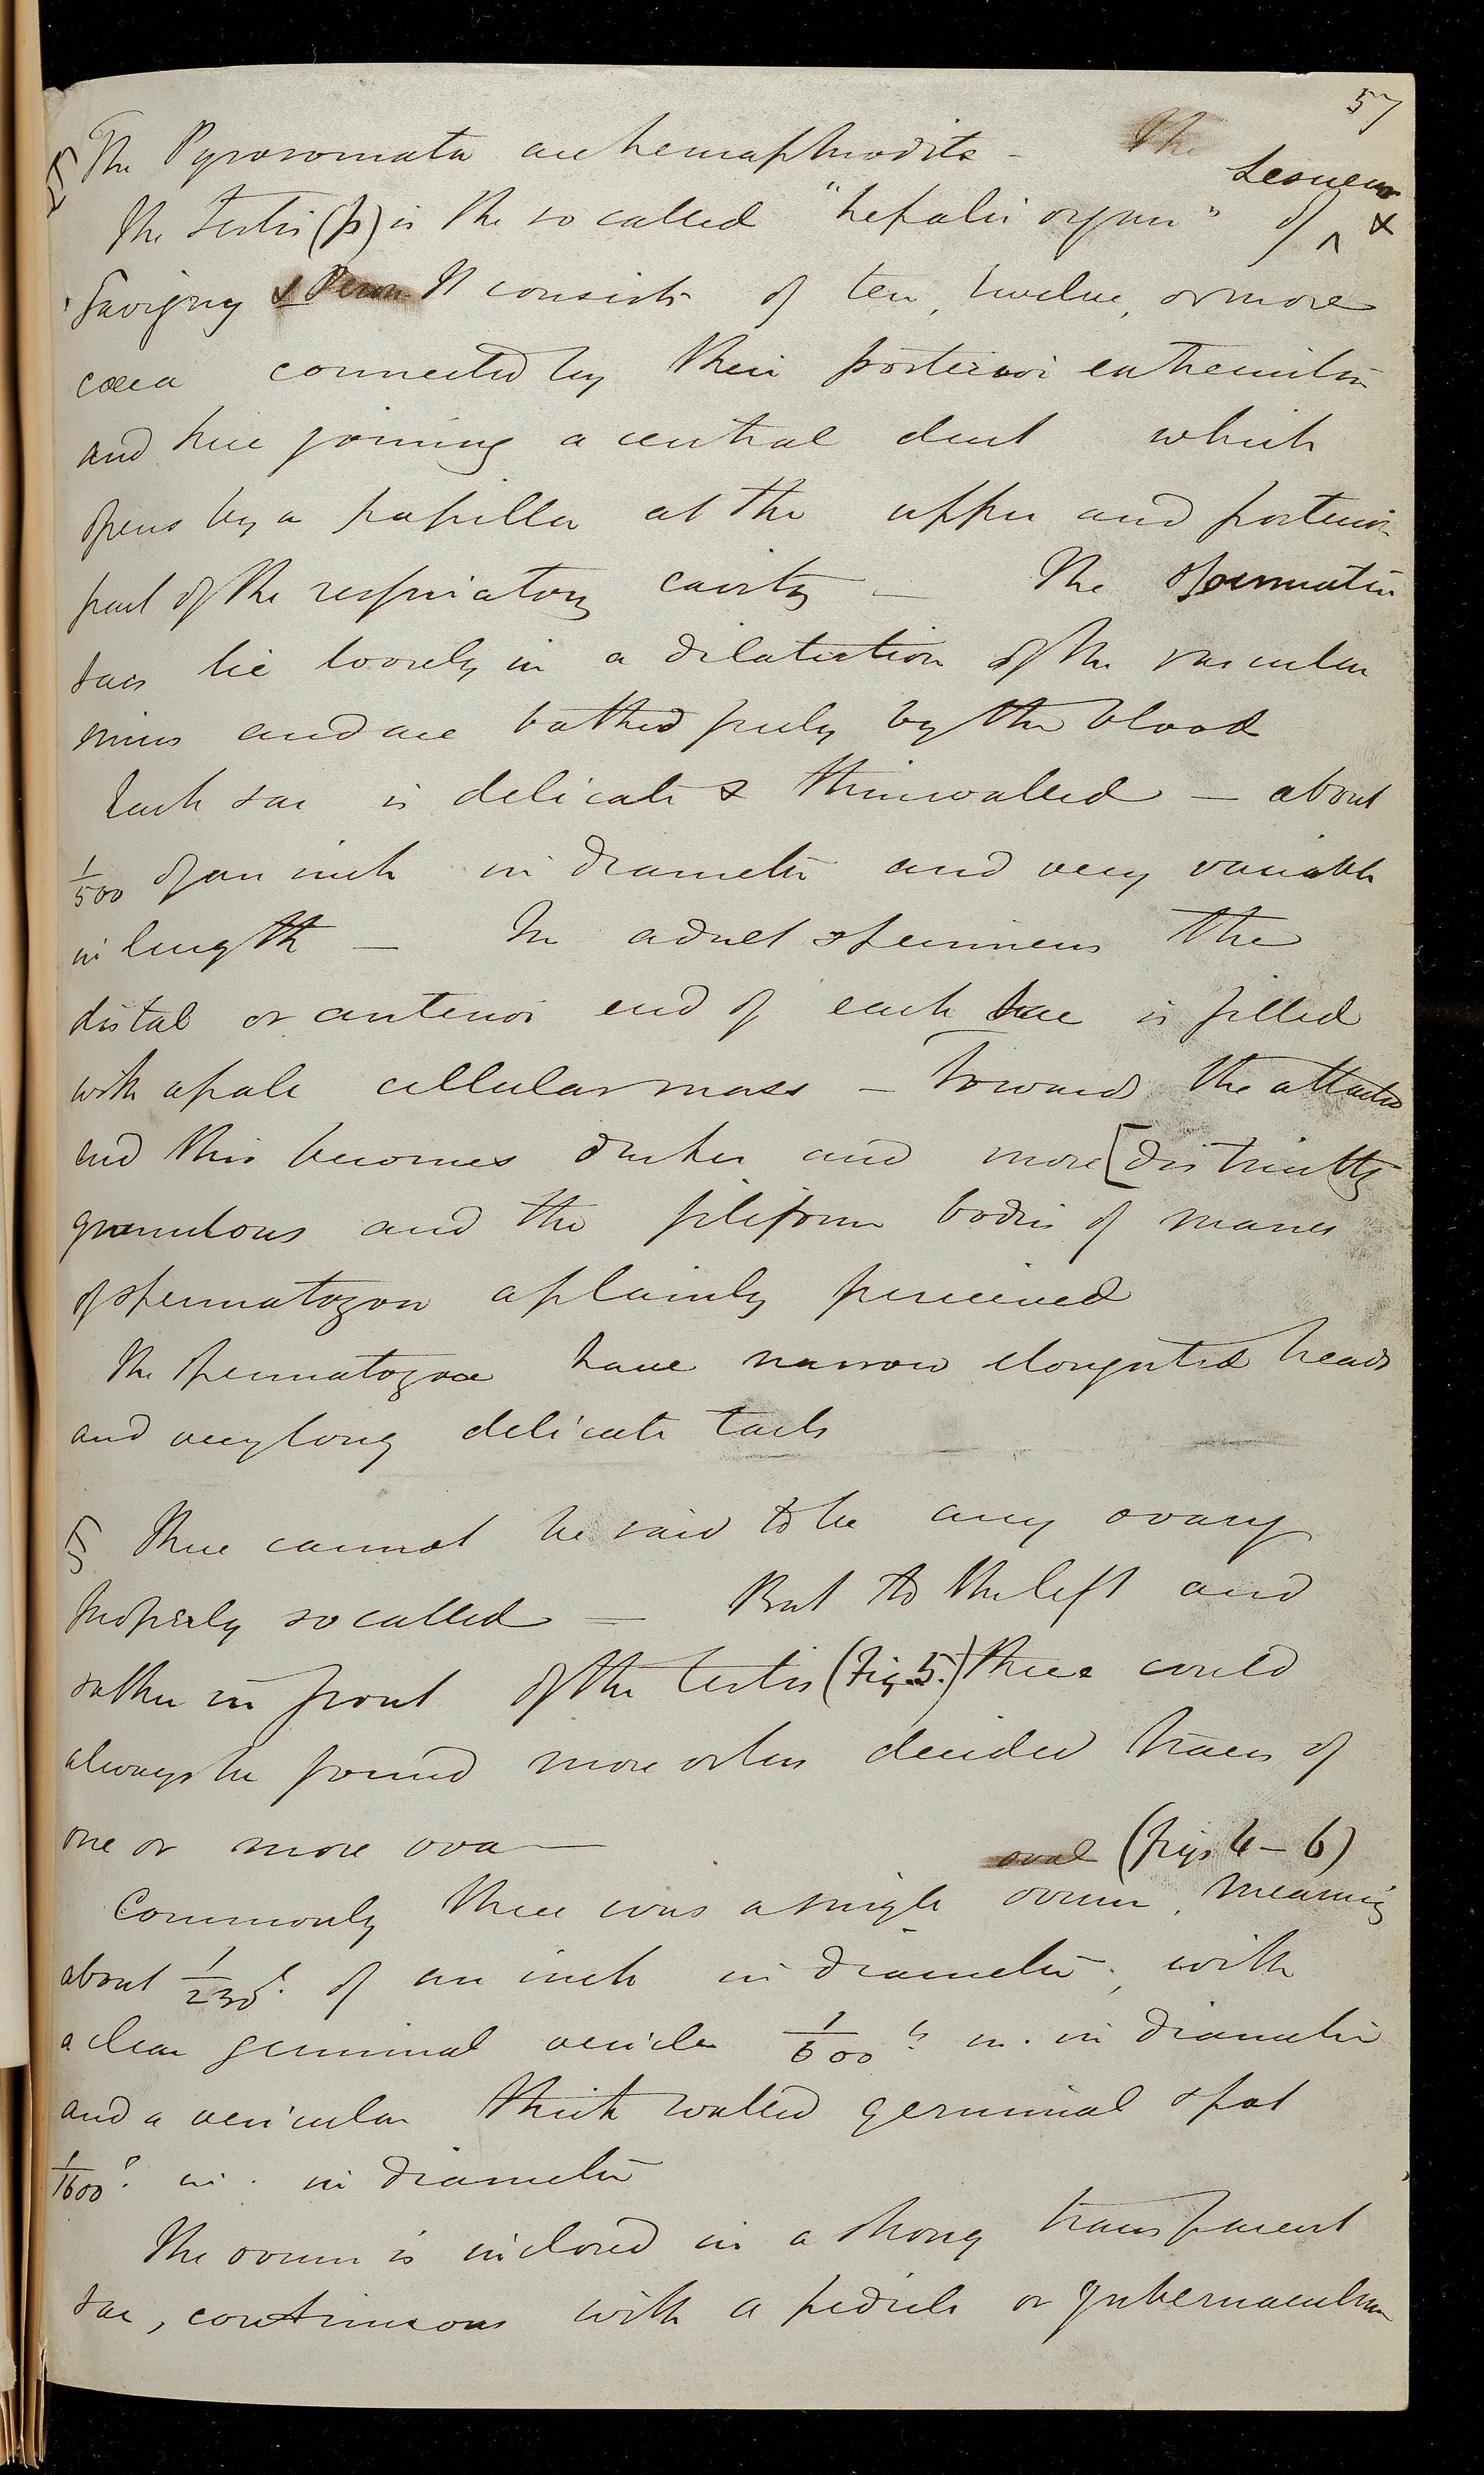 57
The Pyrosomata are hermaphrodite - The
Lesueur
The testis (p) is the so called "hepatic organ" of ^ &
Savigny & Peron It consists of ten, twelve, or more
cæca connected by their posterior extremities
and here joining a central duct which
opens by a papilla at the upper and posterior
part of the respiratory cavity — The spermatic
sacs lie loosely in a dilatation of the vascular
sinus and are bathed freely by the blood
Each sac is delicate & thinwalled — about
1/500 of an inch in diameter and very variable
in length — In adult specimens the
distal or anterior end of each sac is filled
with a pale cellular mass — Toward the attached
end this becomes darker and more [distinctly
granulous and the filiform bodies of masses
of spermatozoa aplainly perceived
The spermatozoa have narrow elongated heads
and very long delicate tails
There cannot be said to be any ovary
properly so called — But to the left and
rather in front of the testis (Fig. 5.) there could
always be found more or less decided traces of
one or more ova —
oval (figs 4-6)
Commonly there was a single ovum, measuring
about 1/230 of an inch in diameter; with
a clear germinal vesicle 1/600 in. in diameter
and a vesicular thick walled germinal spot
1/1600 in. in diameter
The ovum is inclosed in a strong transparent
sac, continuous with a pedicle or gubernaculum